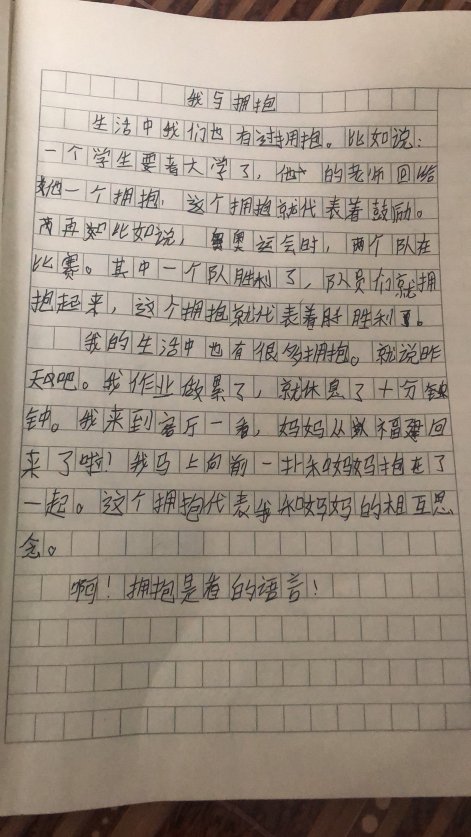 我与拥抱
生活中我们也有过拥抱。比如说：
一个学生要考大学了，他的老师回给
他一个拥抱，这个拥抱就代表着鼓励。
再比如说，奥运会时，两个队在
比赛。其中一个队胜利了，队员们就拥
抱起来，这个拥抱就代表着胜利。
我的生活中也有很多拥抱。就说昨
天吧。我作业做累了，就休息了十分
钟。我来到客厅一看，妈妈从福建回
来了啦！我马上向前一扑和妈妈抱在了
一起。这个拥抱代表我和妈妈的相互思
念。
啊！拥抱是有的语言！